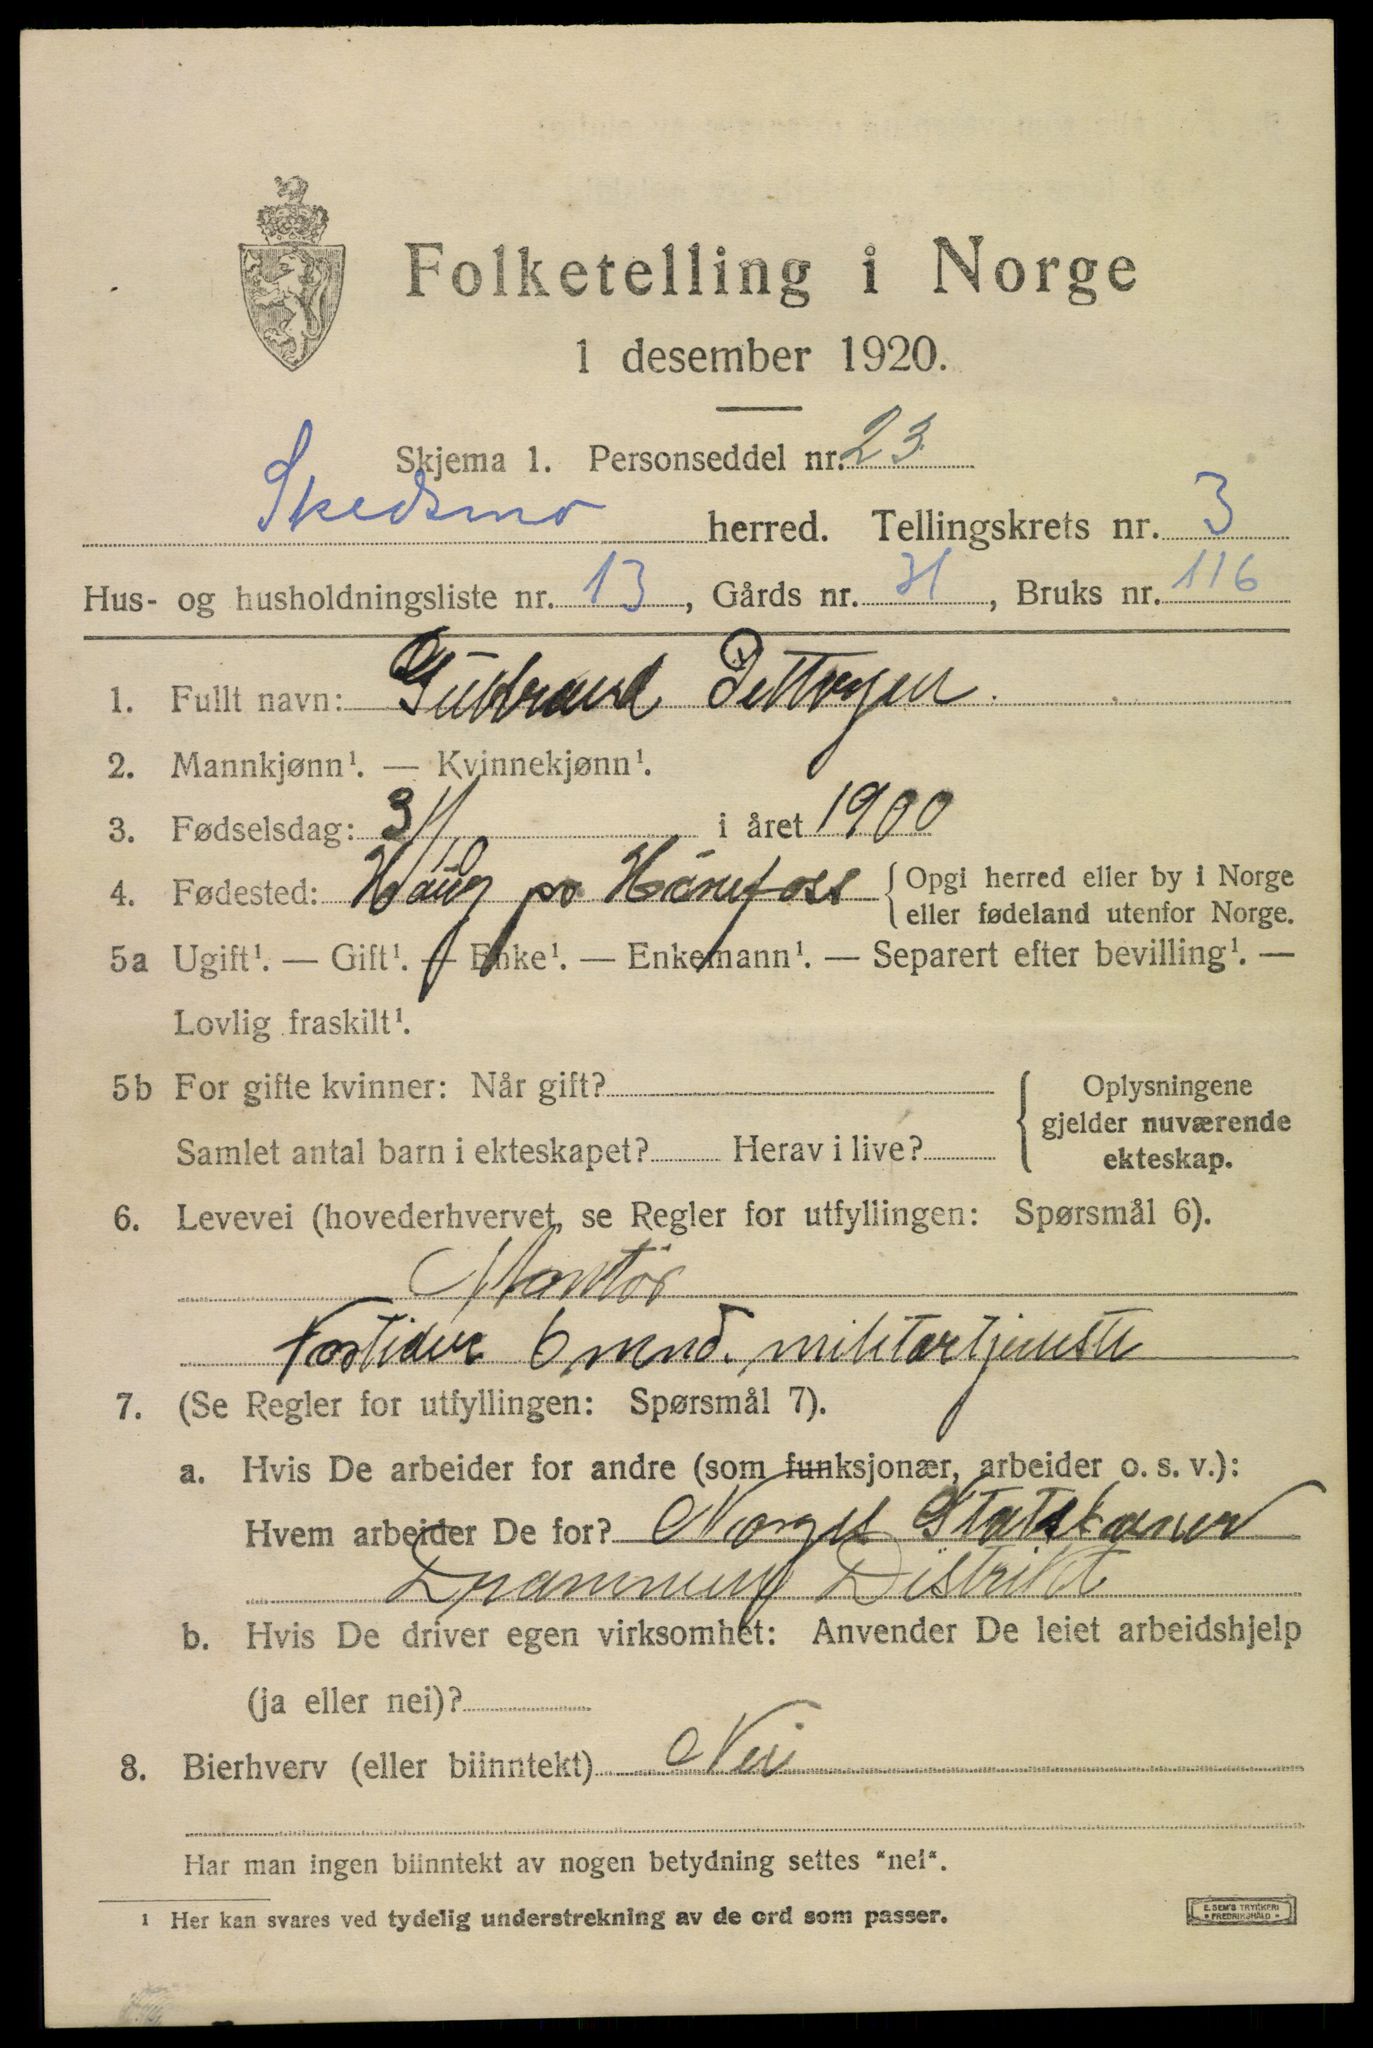 Folketelling i Norge
1 desember 1920.
Skjema 1. Personseddel nr. 23
Skedsmo herred. Tellingskrets nr. 3
Hus- og husholdningsliste nr. 13, Gårds nr. 31, Bruks nr. 116
1. Fullt navn: Gudbrand
2. Mannkjønn¹. — Kvinnekjønn¹.
3. Fødselsdag: 3/10 i året 1900
4. Fødested: Haug pr Hönefoss {Opgi herred eller by i Norge
eller fødeland utenfor Norge.
5a Ugift¹. — Gift¹. — Enke¹. — Enkemann¹. — Separert efter bevilling¹. —
Lovlig fraskilt¹.
5b For gifte kvinner: Når gift?
Samlet antal barn i ekteskapet? Herav i live?
{Oplysningene
gjelder nuværende
ekteskap.
6. Levevei (hovederhvervet, se Regler for utfyllingen: Spørsmål 6).
Montör
Fortiden 6 mnd. militærtjeneste
7. (Se Regler for utfyllingen: Spørsmål 7).
a. Hvis De arbeider for andre (som funksjonær, arbeider o. s. v.):
Hvem arbeider De for? Norges Statsbaner
Drammens Distrikt
b. Hvis De driver egen virksomhet: Anvender De leiet arbeidshjelp
(ja eller nei)?
8. Bierhverv (eller biinntekt) Nei
Har man ingen biinntekt av nogen betydning settes "nei".
¹ Her kan svares ved tydelig understrekning av de ord som passer.
E. SEM'S TRYKKERI
FREDRIKSHALD